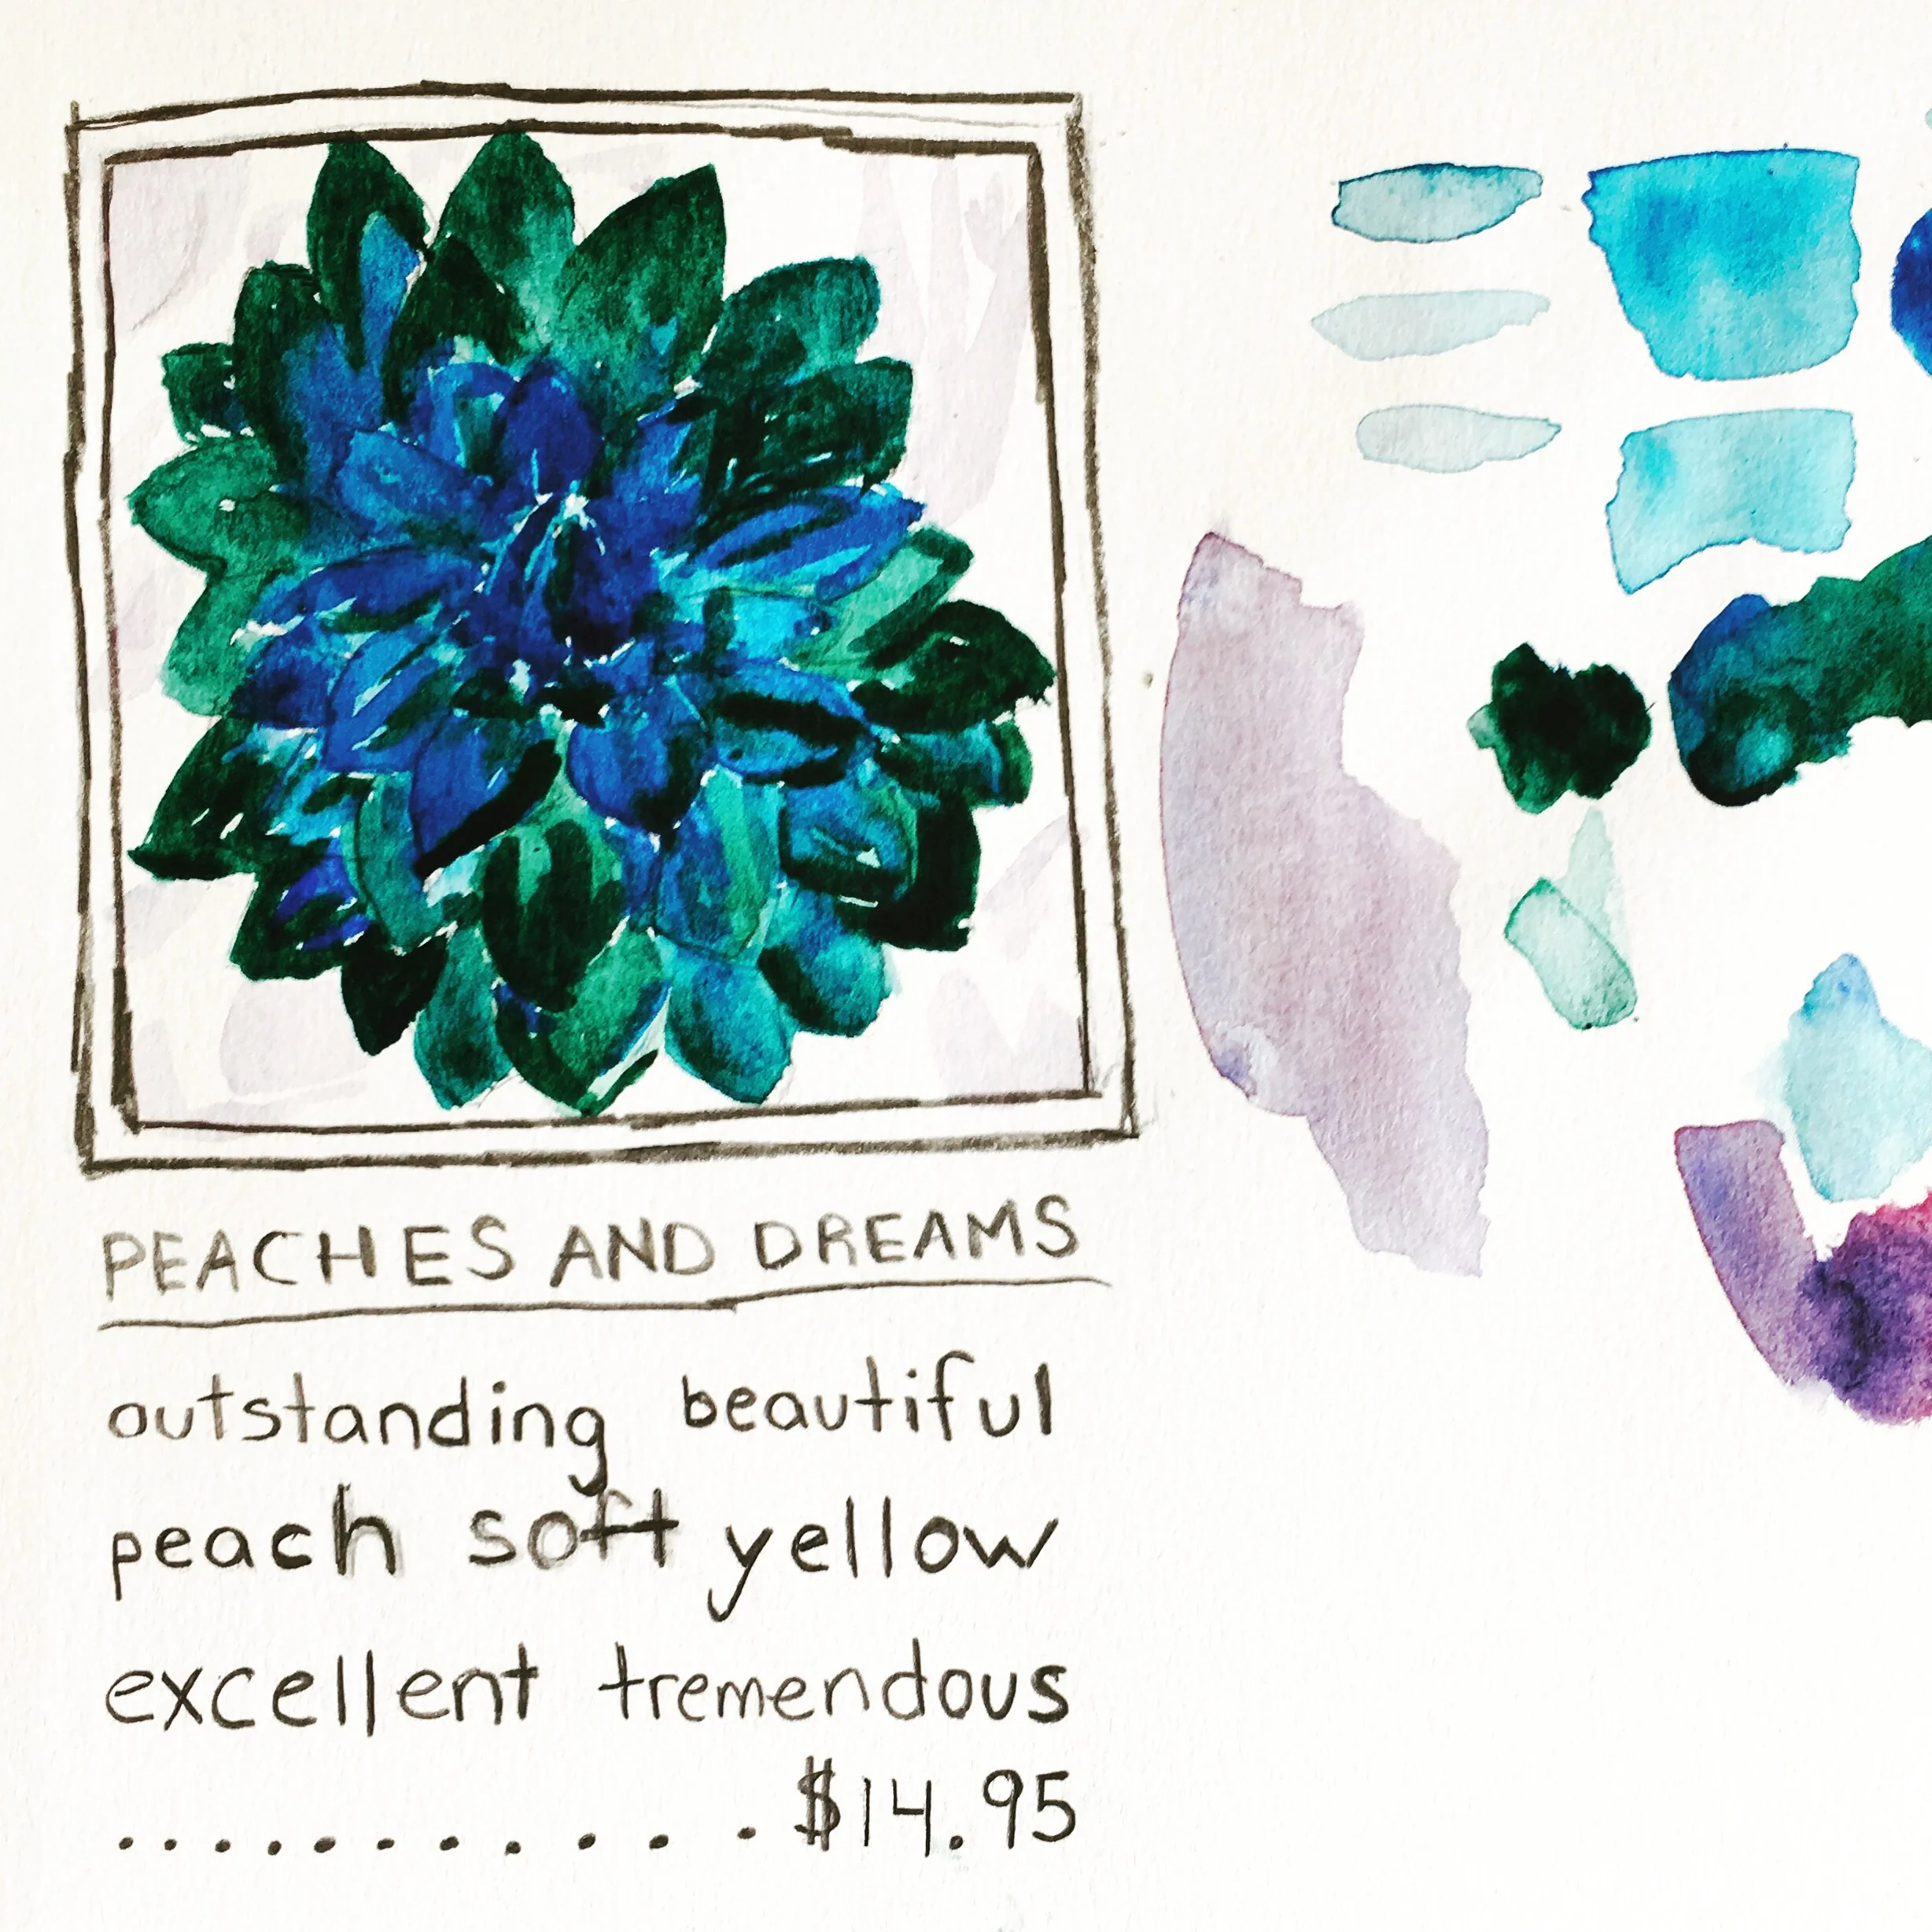 PEACHES AND DREAMS
outstanding beautiful
peach soft yellow
excellent tremendous
............$14.95